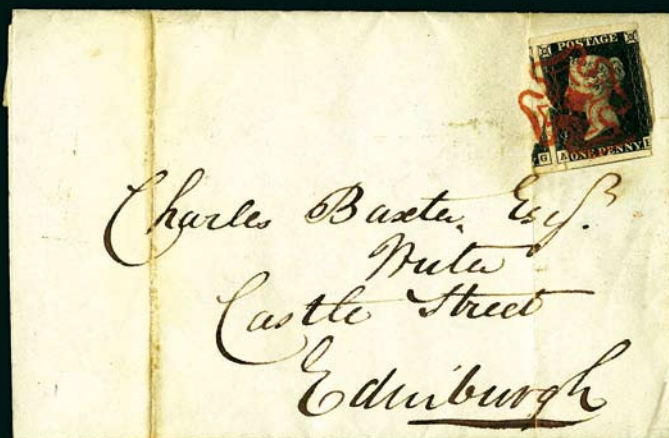 POSTAGE
G A ONE PENNY
Charles Baxter Esqr.
Writer
Castle Street
Edinburgh